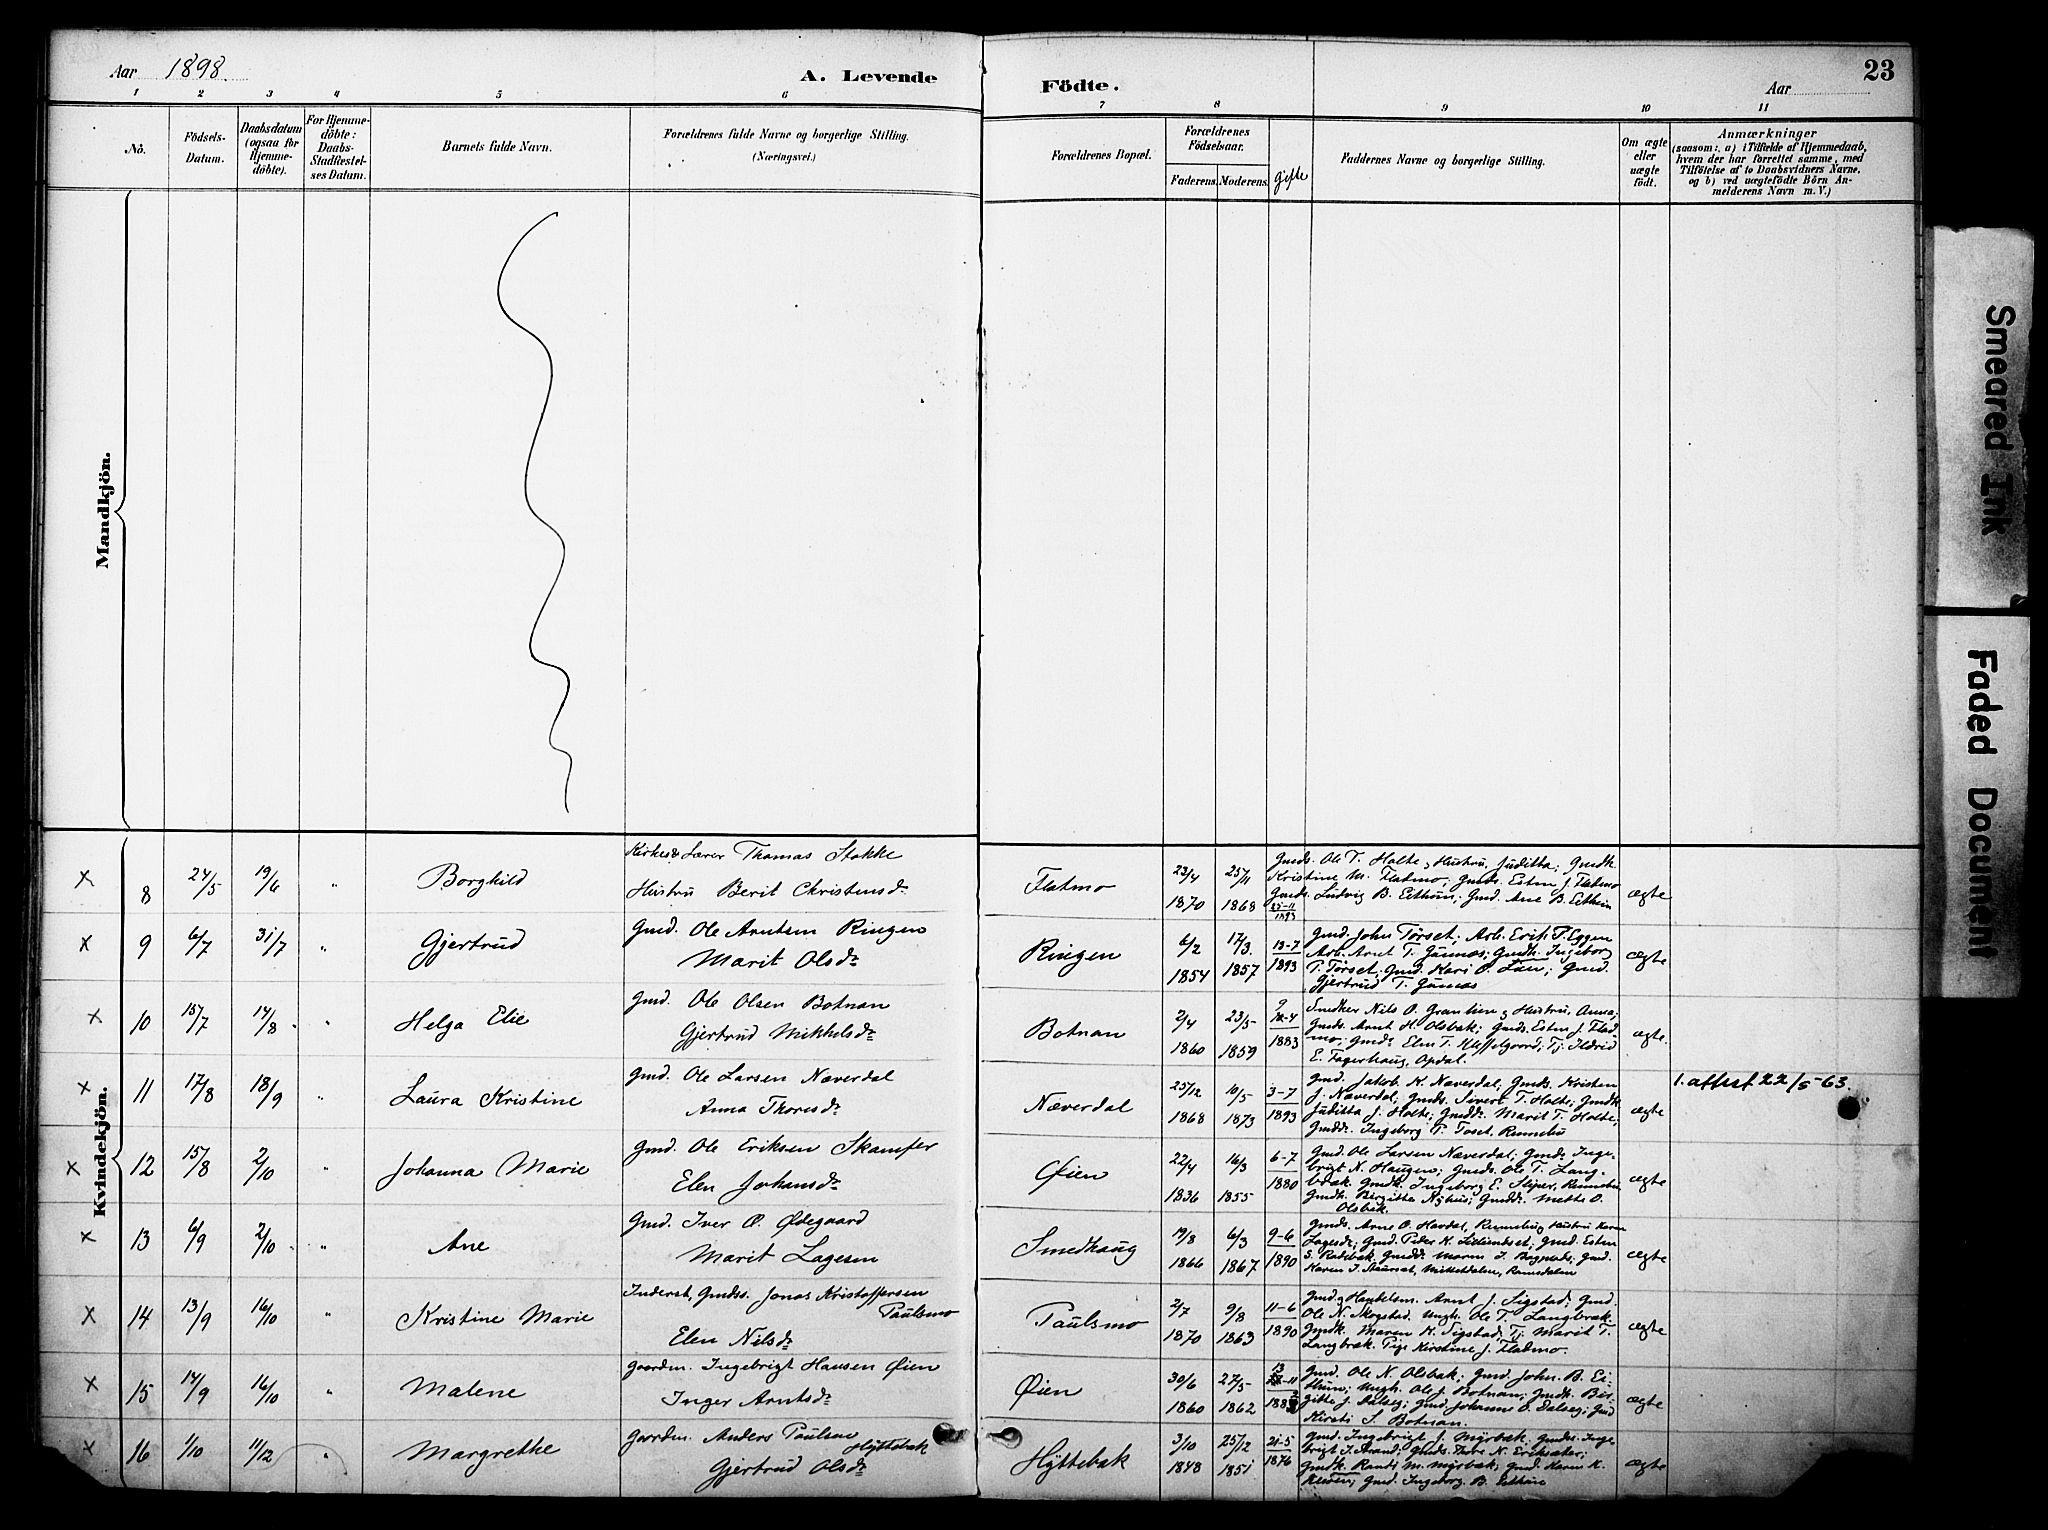 Aar 1898.
A. Levende
Födte.
Aar
23
1 2 3 4 5 6 7 8 9 10 11
No.
Födsels-Datum.
Daabsdatum (ogsaa for Hjemme-döbte).
For Hjemme-döbte: Daabs-Stadfæstel-ses Datum.
Barnets fulde Navn.
Forældrenes fulde Navne og borgerlige Stilling.
(Næringsvei.)
Forældrenes Bopæl.
Forældrenes Födselsaar.
Faderens. Moderens.
gifte
Faddernes Navne og borgerlige Stilling.
Om ægte eller uægte födt.
Anmærkninger
(saasom: a) i Tilfælde af Hjemmedaab, hvem der har forrettet samme, med Tilföielse af to Daabsvidners Navne, og b) ved uægtefödte Börn An-melderens Navn m. V.)
Mandkjön.
Kvindekjön.
x 8 24/5 19/6 " Borghild
Lærer Thomas Stokke
Hustru Berit Christensdr
Flatmo
23/4 1870 25/11 1868 25-11 1893
Gmds. Ole T. Holte, Hustru, Juditta; Gmdk.
Kristine M. Flatmo, Gmds. Esten J. Flatmo
Gmds. Ludvig B. Eithun; Gmd. Ane B. Eithun
ægte
x 9 6/7 31/7 " Gjertrud
Gmd. Ole Arntsen Ringen
Marit Olsdr
Ringen
6/2 1854 17/3 1857 13-7 1893
Gmd. John Törset; Arb. Erik P. Eggen
Arb. Arnt T. Gunnes; Gmdk. Ingeborg
T. Törset; Gmd. Kari O. Lien; Gmd.
Gjertrud T. Gunnes
ægte
x 10 15/7 14/8 " Helga Elie
Gmd. Ole Olsen Botnan
Gjertrud Mikkelsdr
Botnan
2/4 1860 23/5 1859 1883
Smedker Nils O. Hustru, Anna,
Gmds. Arnt H. Olsbak; Gmds. Esten J. Flat-
mo; Gmdr Elen T. Tj. Ildrid
E. Fagerhaug, Opdal.
ægte.
x 11 17/8 18/9 " Laura Kristine
Gmd. Ole Larsen Næverdal
Anna Thoresdr
Næverdal
25/12 1868 10/5 1873 3-7 1893
Gmd. Jakob K. Næverdal; Gmds. Kristen
J. Næverdal, Gmds. Sivert T. Holte; Gmdk
Juditta J. Holte; Gmdd. Marit T. Holte,
Gmdd. Ingeborg P. Toset, Rennebu
ægte
1. attest 22/5-63.
x 12 15/8 2/10 " Johanna Marie
Gmd. Ole Eriksen Skamfer
Elen Johansdr
Øien
22/4 1836 16/3 1855 6-7 1880
Gmd. Ole Larsen Næverdal; Gmds Inge-
brigt N. Haugen; Gmds. Ole T. Lang-
brak. Gmdk. Ingeborg E. Rennebu
Gmdk. Birgitte Nyhus; Gmdd. Mette O.
Olsbak.
ægte
x 13 6/9 2/10 " Ane
Gmd. Iver O. Ødegaard
Marit Lagesen
Smedhaug
19/8 1866 6/3 1867 9-6 1890
Gmds. Arne O. Havdal, Rennebu, Hustru Karen
Lagesdr; Gmd. Peder K. Gmd. Esten
S. Gmdd. Maren I. Gmd.
Karen I. Staurset, Romsdalen
ægte
x 14 13/9 16/10 " Kristine Marie
Inderst, Gmdss. Jonas Kristoffersen
Paulsmo
Elen Nilsdr
Paulsmo
2/7 1870 9/8 1863 11-6 1890
Gmd & Handelsm. Arnt J. Sigstad; Gmd.
Ole N. Skogstad. Ungk. Ole T. Langbrak.
Gmdk. Maren K. Sigstad; Tj. Marit T.
Langbrak. Pige Kirstine J. Flatmo.
ægte
x 15 14/9 16/10 " Malene
Gaardm. Ingebrigt Hansen Øien
Inger Arntsdr
Øien
30/6 1860 27/5 1862
Gmd. Ole N. Olsbak; Gmd. John B. Ei-
thun; Ungk. Ole J. Botnan; Gmdk. Bir-
gitte J. Dalseg; Gmd. Johanne O. Dalseg; Gmd
Kirsti S. Botnan.
ægte
x 16 1/10 11/12 " Margrethe
Gaardm. Anders Paulsen
Hÿttebak
Gjertrud Olsdr
Hÿttebak
3/10 1848 25/12 1851 21-5 1876
Gmd. Ingebrigt J. Myrbak, Gmds. Inge-
brigt I. Strand; Gmds. Thore N. Eriksæter;
Gmdk. Randi M. Myrbak; Gmd. Karen K.
Gmd. Ingeborg B. Eithun
ægte
Smeared Ink
Faded Document